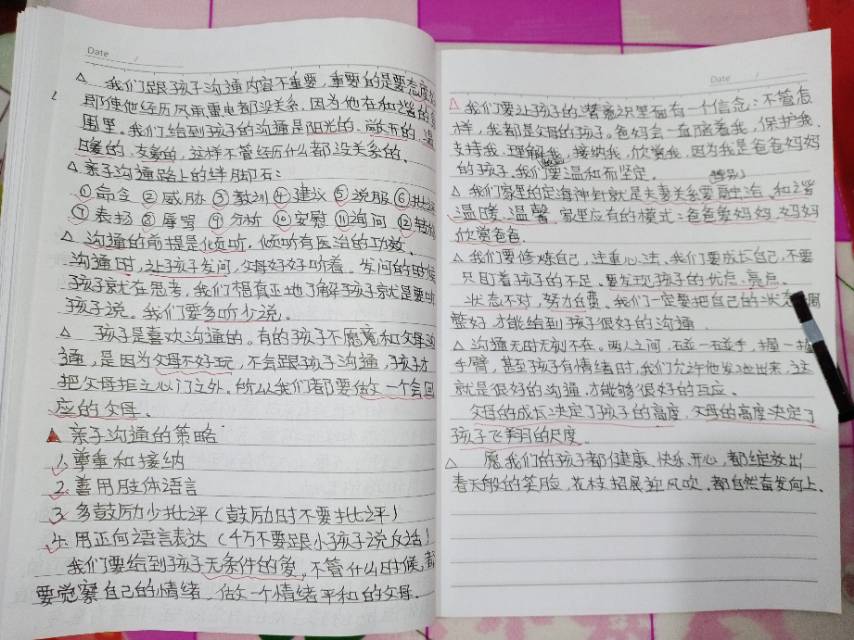 Date /
△ 我们跟孩子沟通内容不重要,重要的是要态度
即使他经历风雨雷电都没关系,因为他在和谐的氛
围里。我们给到孩子的沟通是阳光的,敞开的,温
暖的,支爱的,这样不管经历什么都没关系的。
△ 亲子沟通路上的绊脚石:
①命令 ②威胁 ③教训 ④建议 ⑤说服 ⑥批
⑦表扬 ⑧辱骂 ⑨分析 ⑩安慰 ⑪询问 ⑫转
△ 沟通的前提是倾听,倾听有医治的功效。
沟通时,让孩子发问,父母好好听着。发问的时候
孩子就在思考,我们想真正地了解孩子就是要听
孩子说。我们要多听少说。
△ 孩子是喜欢沟通的。有的孩子不愿意和父母沟
通,是因为父母不好玩,不会跟孩子沟通,孩子才
把父母拒之心门之外。所以我们都要做一个会回
应的父母。
▲ 亲子沟通的策略
1. 尊重和接纳
2. 善用肢体语言
3. 多鼓励少批评(鼓励时不要批评)
4. 用正向语言表达(千万不要跟小孩子说反话)
我们要给到孩子无条件的爱,不管什么时候,都
要觉察自己的情绪,做一个情绪平和的父母.
Date /
△ 我们要让孩子的潜意识里面有一个信念:不管怎
样,我都是父母的孩子。爸妈会一直陪着我,保护我,
支持我,理解我,接纳我,欣赏我,因为我是爸爸妈妈
的孩子,我们要温和而坚定。
△ 我们家里的定海神针就是夫妻关系要融洽、和谐
温暖、温馨,家里应有的模式:爸爸爱妈妈,妈妈
欣赏爸爸.
△ 我们要修炼自己,注重心法、我们要成长自己,不要
只盯着孩子的不足,要发现孩子的优点,亮点.
状态不对,努力白费、我们一定要把自己的状态调
整好,才能给到孩子很好的沟通.
△ 沟通无时无刻不在。两人之间,石碰一石碰手,握一握
手臂,甚至孩子有情绪时,我们允许他发泄出来,这
就是很好的沟通,才能够很好的互应。
父母的成长决定了孩子的高度,父母的高度决定了
孩子飞翔的尺度。
△ 愿我们的孩子都健康、快乐、开心,都绽放出
春天般的笑脸,花枝招展迎风吹,都自然奋发向上.